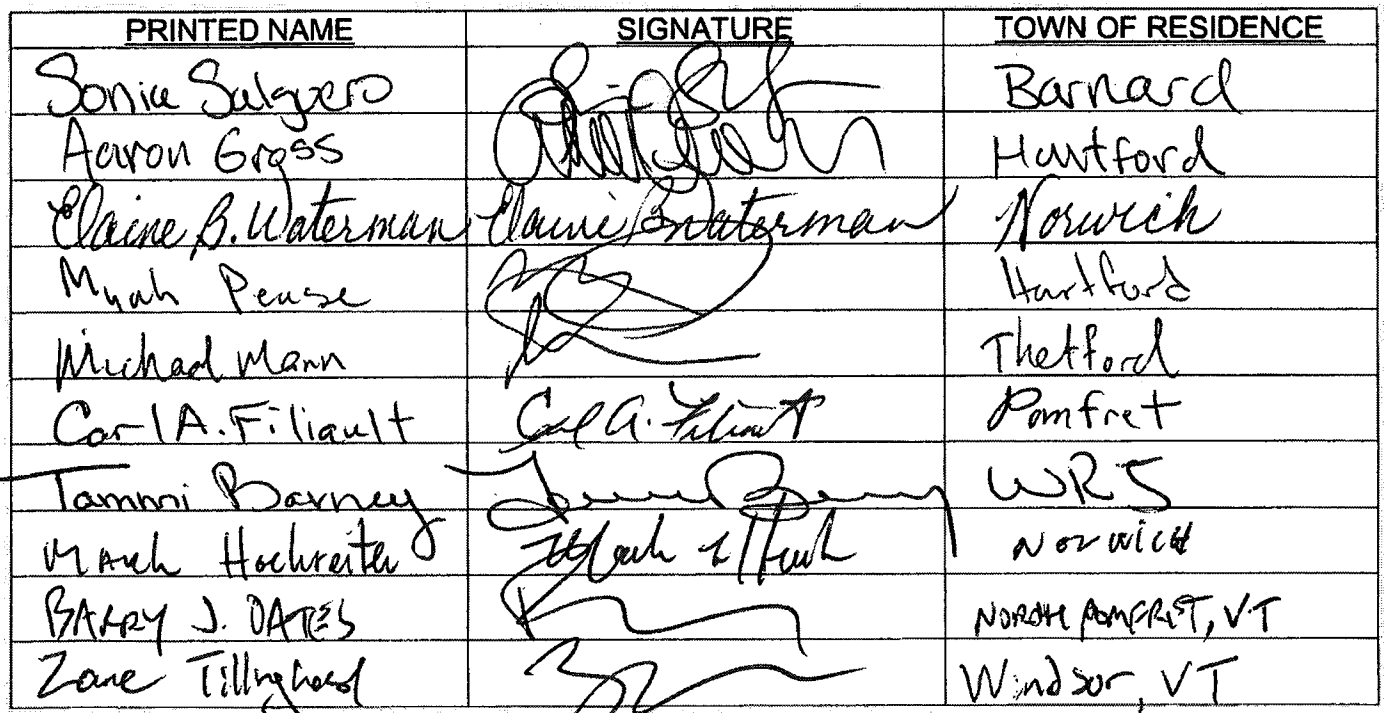 PRINTED NAME SIGNATURE TOWN OF RESIDENCE
Sonia Salguero Barnard
Aaron Gross Hartford
Elaine B. Waterman Elaine B Waterman Norwich
Myah Pease Hartford
Michael Mann Thetford
Carl A. Filiault Carl A. Filiault Pomfret
Tammi Barney WRJ
Mark Hochreiter Norwich
BARRY J. OATES NORTH POMFRET, VT
Zane Tillinghast Windsor, VT